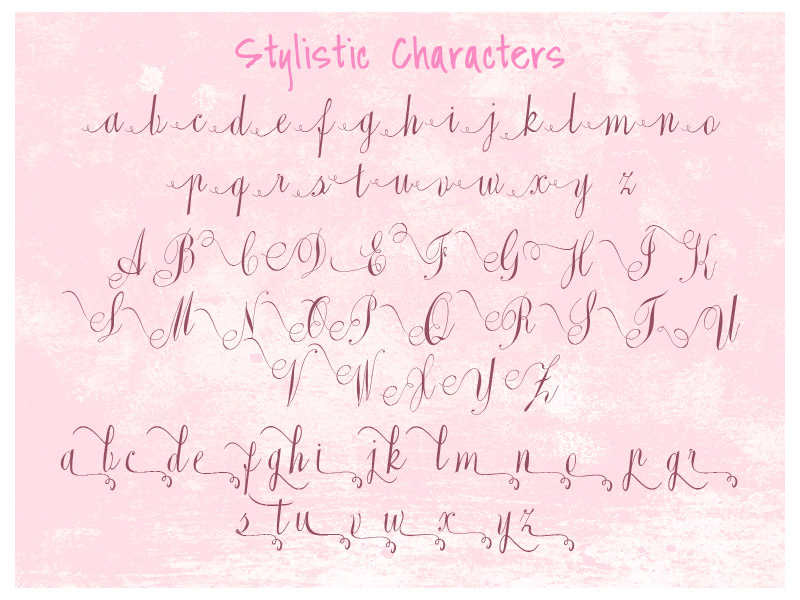 Stylistic Characters
a b c d e f g h i j k l m n o
p q r s t u v w x y z
A B C D E F G H I K
L M N O P Q R S T U
V W X Y Z
a b c d e f g h i j k l m n o p q r
s t u v w x y z